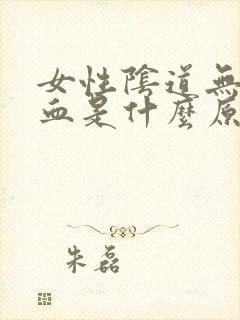 女性陰道無
血是什麼原
朱磊